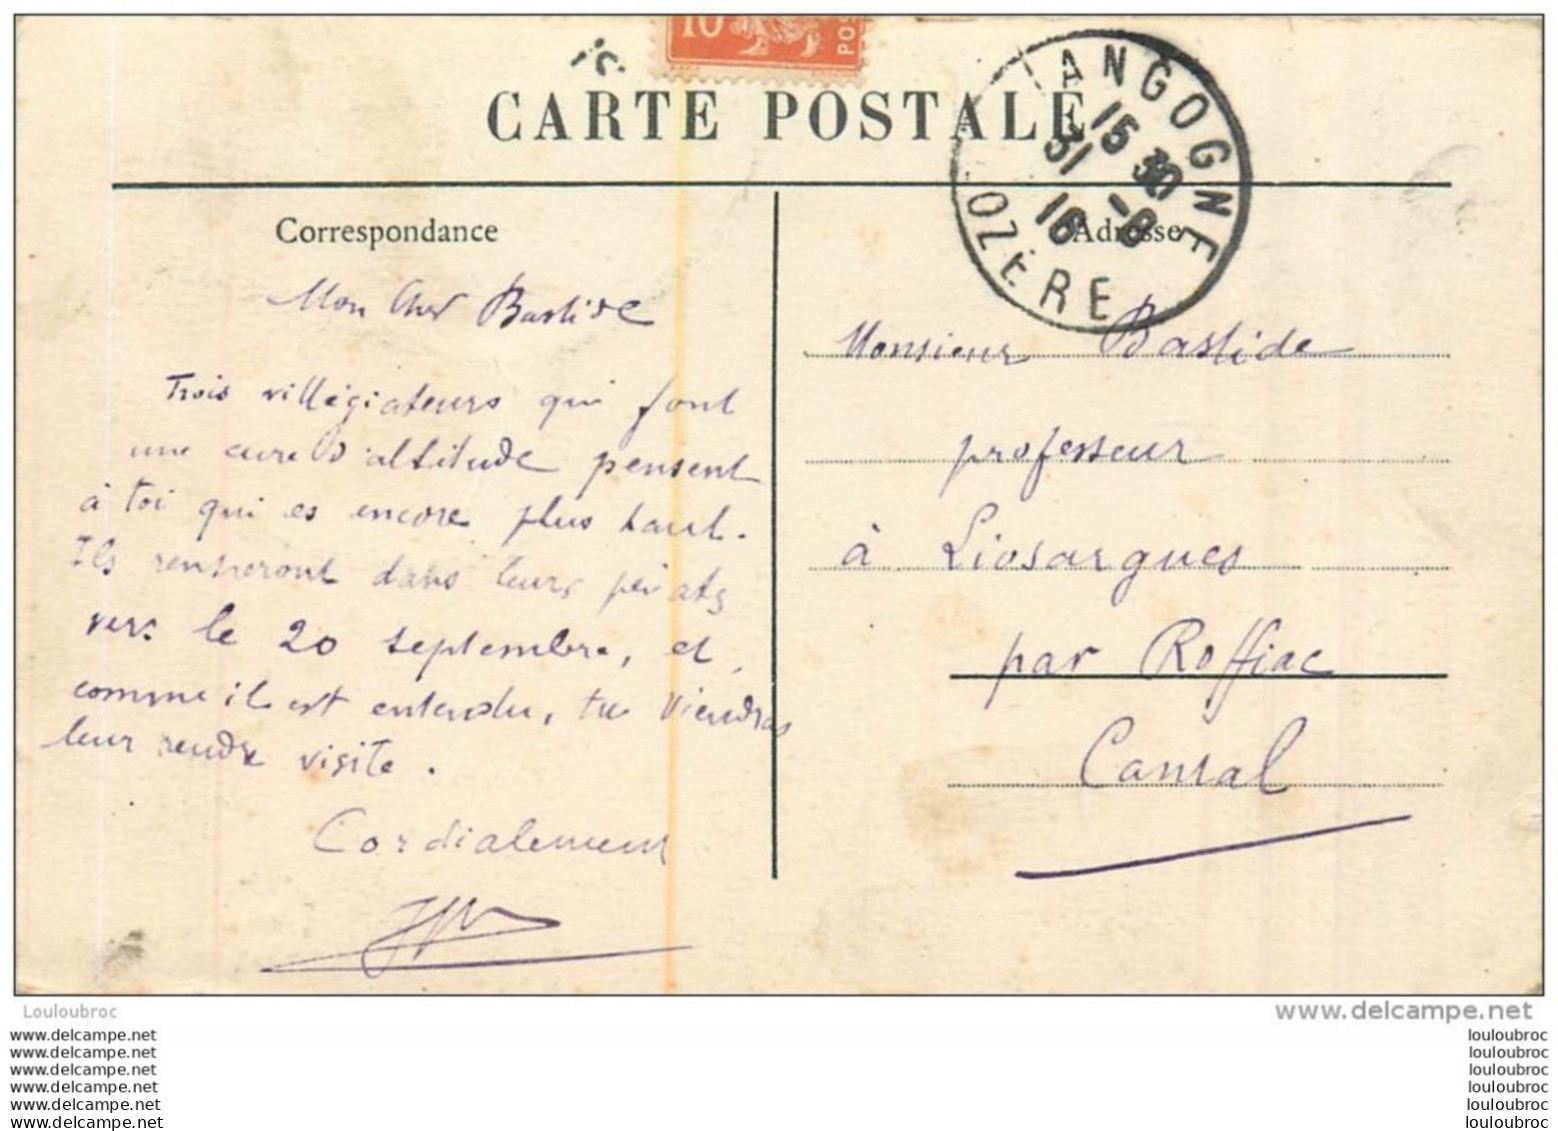 10
POS
CARTE POSTALE
LANGOGNE
15 30
31 -8
16
LOZÈRE
Correspondance
Adresse
Mon cher Bastide
Trois villégiateurs qui font
une cure d'altitude pensent
à toi qui es encore plus haut.
Ils rentreront dans leurs pénates
vers le 20 septembre, et,
comme il est entendu, tu viendras
leur rendre visite.
Cordialement
Monsieur Bastide
professeur
à Liosargues
par Roffiac
Cantal
Louloubroc
www.delcampe.net
www.delcampe.net
www.delcampe.net
www.delcampe.net
www.delcampe.net
www.delcampe.net
www.delcampe.net
louloubroc
louloubroc
louloubroc
louloubroc
louloubroc
louloubroc